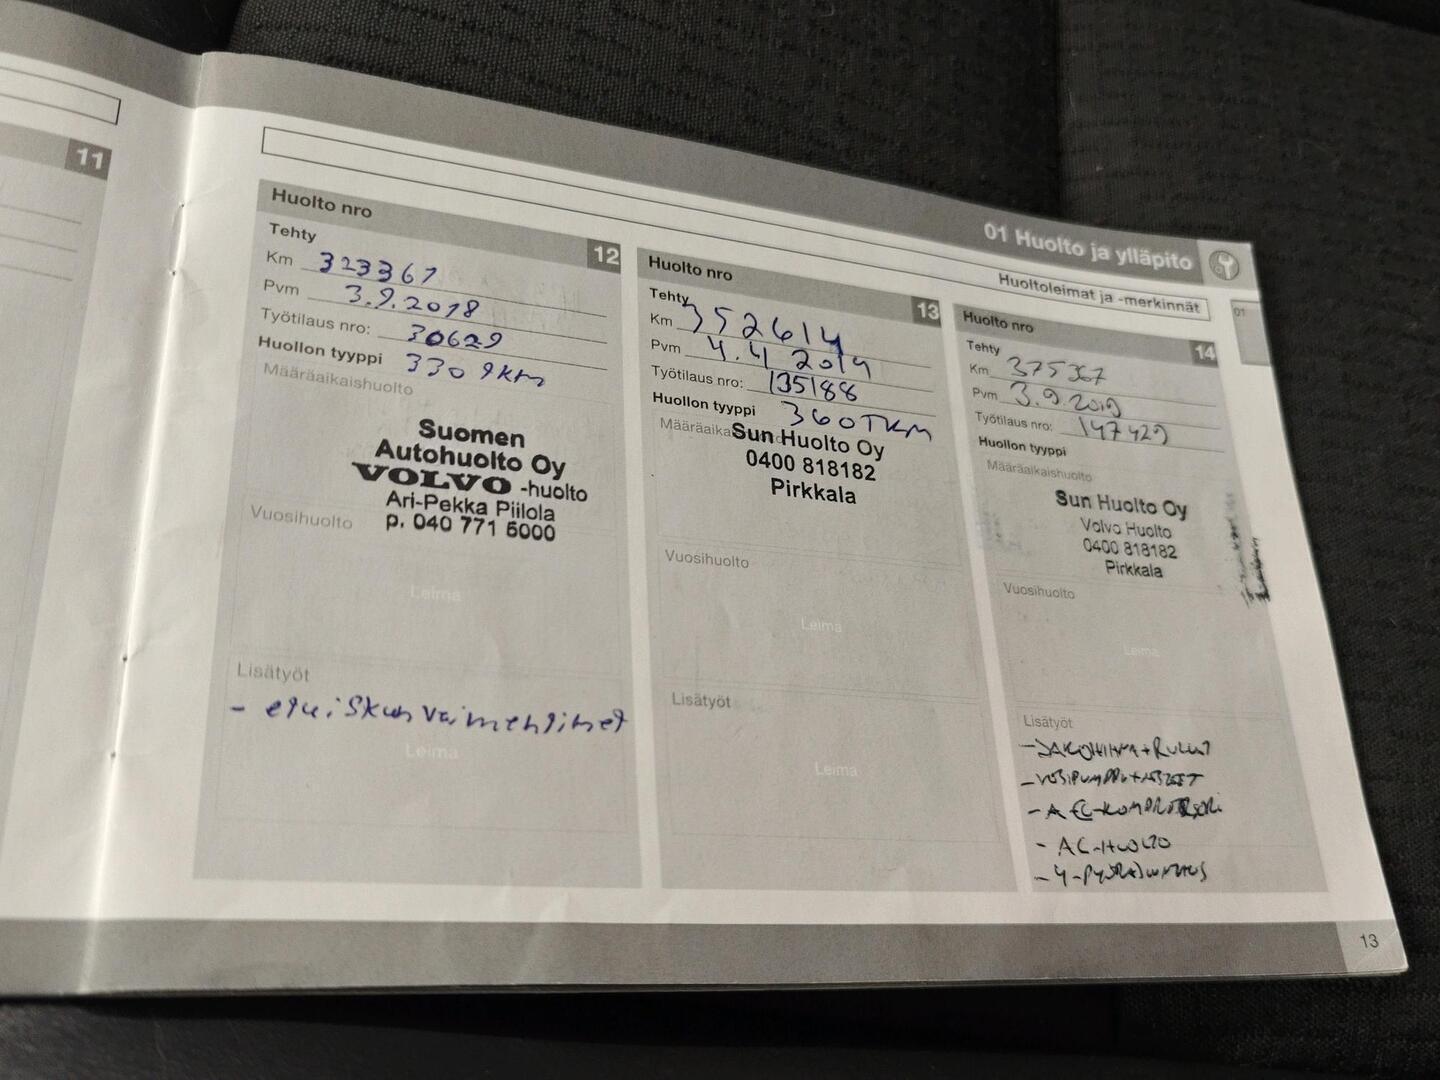 11
01 Huolto ja ylläpito
Huoltoleimat ja -merkinnät
01
Huolto nro 12
Tehty
Km 323367
Pvm 3.9.2018
Työtilaus nro: 30629
Huollon tyyppi 330 9km
Määräaikaishuolto
Suomen
Autohuolto Oy
VOLVO -huolto
Ari-Pekka Piilola
p. 040 771 5000
Vuosihuolto
Leima
Lisätyöt
- etuiskunvaimentimet
Leima
Huolto nro 13
Tehty
Km 352614
Pvm 4.4 2019
Työtilaus nro: 135188
Huollon tyyppi 360TKM
Määräaika
Sun Huolto Oy
0400 818182
Pirkkala
Vuosihuolto
Leima
Lisätyöt
Leima
Huolto nro 14
Tehty
Km 375367
Pvm 3.9.2019
Työtilaus nro: 147429
Huollon tyyppi
Määräaikaishuolto
Sun Huolto Oy
Volvo Huolto
0400 818182
Pirkkala
Vuosihuolto
Leima
Lisätyöt
- JAKOHIHNA + RULLAT
- VESIPUMPPU +
-
- AC-HUOLTO
- 4-PYÖRÄSUUNTAUS
13